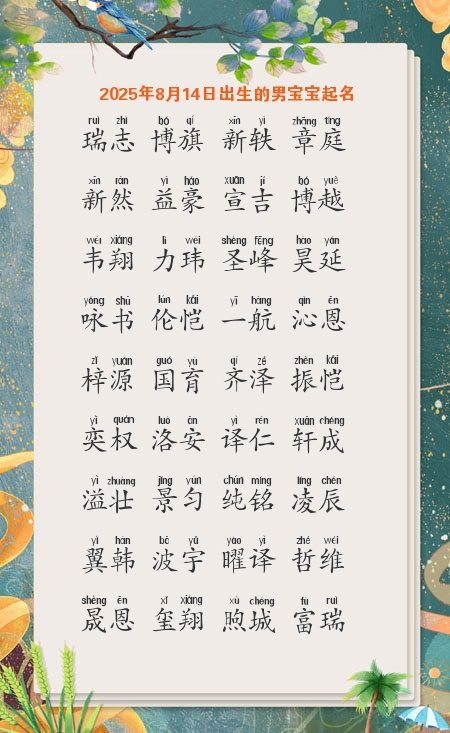 2025年8月14日出生的男宝宝起名
ruì zhì bó qí xīn yì zhāng tíng
瑞志 博旗 新轶 章庭
xīn rán yì háo xuān jí bó yuè
新然 益豪 宣吉 博越
wéi xiáng lì wěi shèng fēng hào yán
韦翔 力玮 圣峰 昊延
yǒng shū lún kǎi yī háng qìn ēn
咏书 伦恺 一航 沁恩
zǐ yuán guó yù qí zé zhèn kǎi
梓源 国育 齐泽 振恺
yì quán luò ān yì rén xuān chéng
奕权 洛安 译仁 轩成
yì zhuàng jǐng yún chún míng líng chén
溢壮 景匀 纯铭 凌辰
yì hán bō yǔ yào yì zhé wéi
翼韩 波宇 曜译 哲维
shèng ēn xǐ xiáng xù chéng fù ruì
晟恩 玺翔 煦城 富瑞